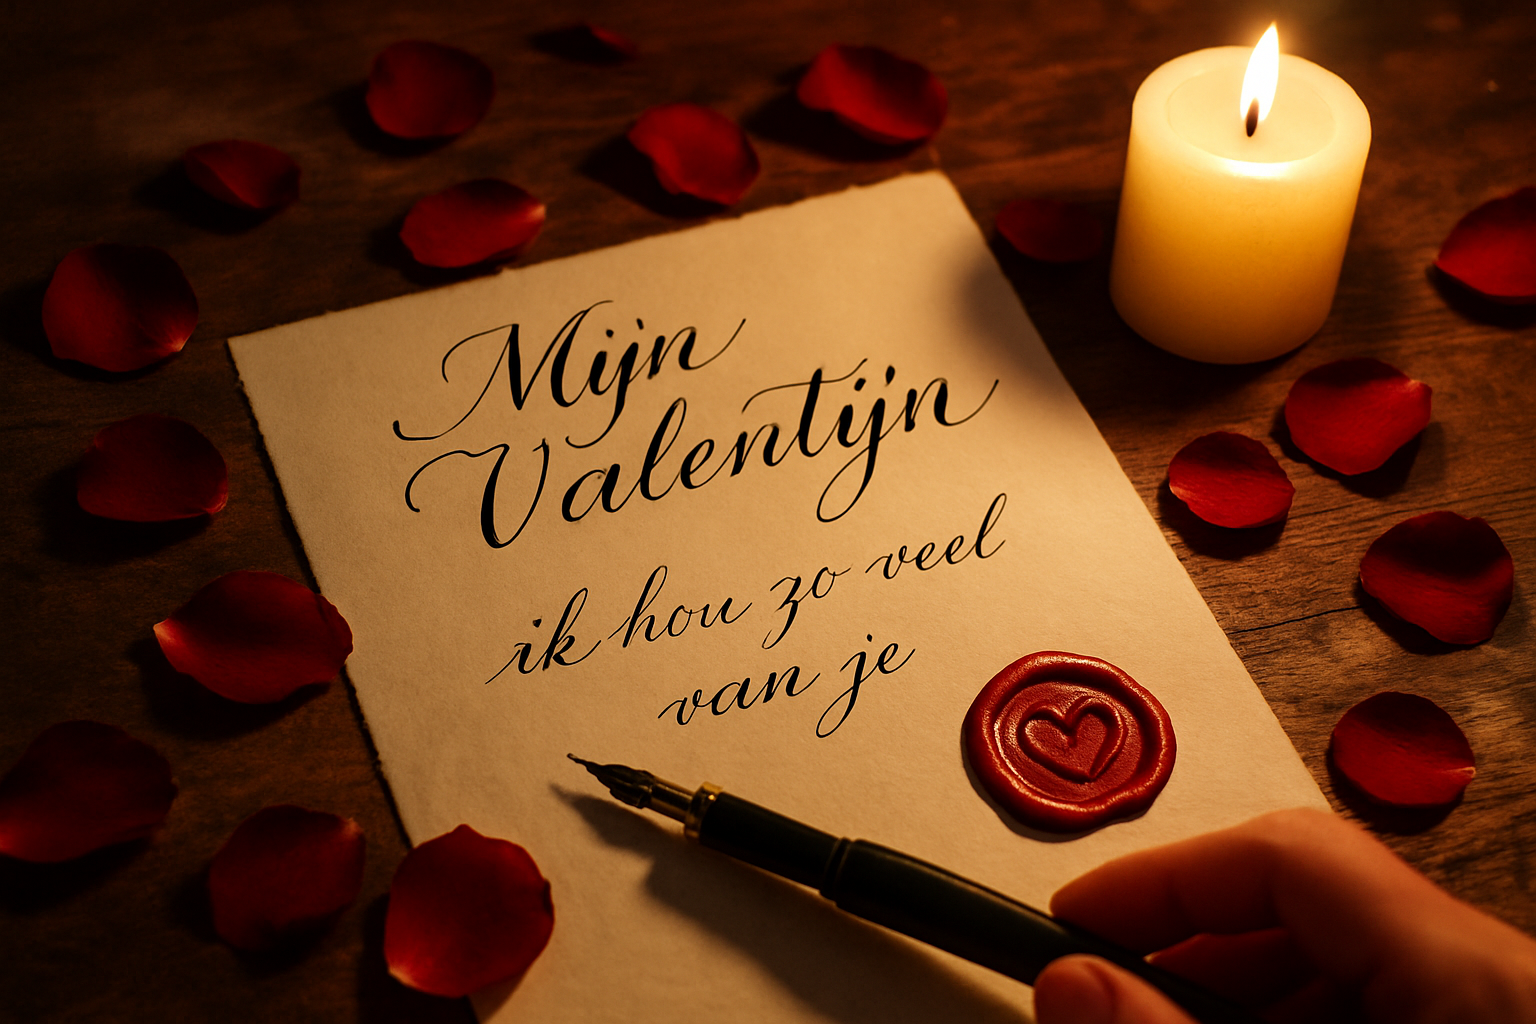 Mijn
Valentijn
ik hou zo veel
van je